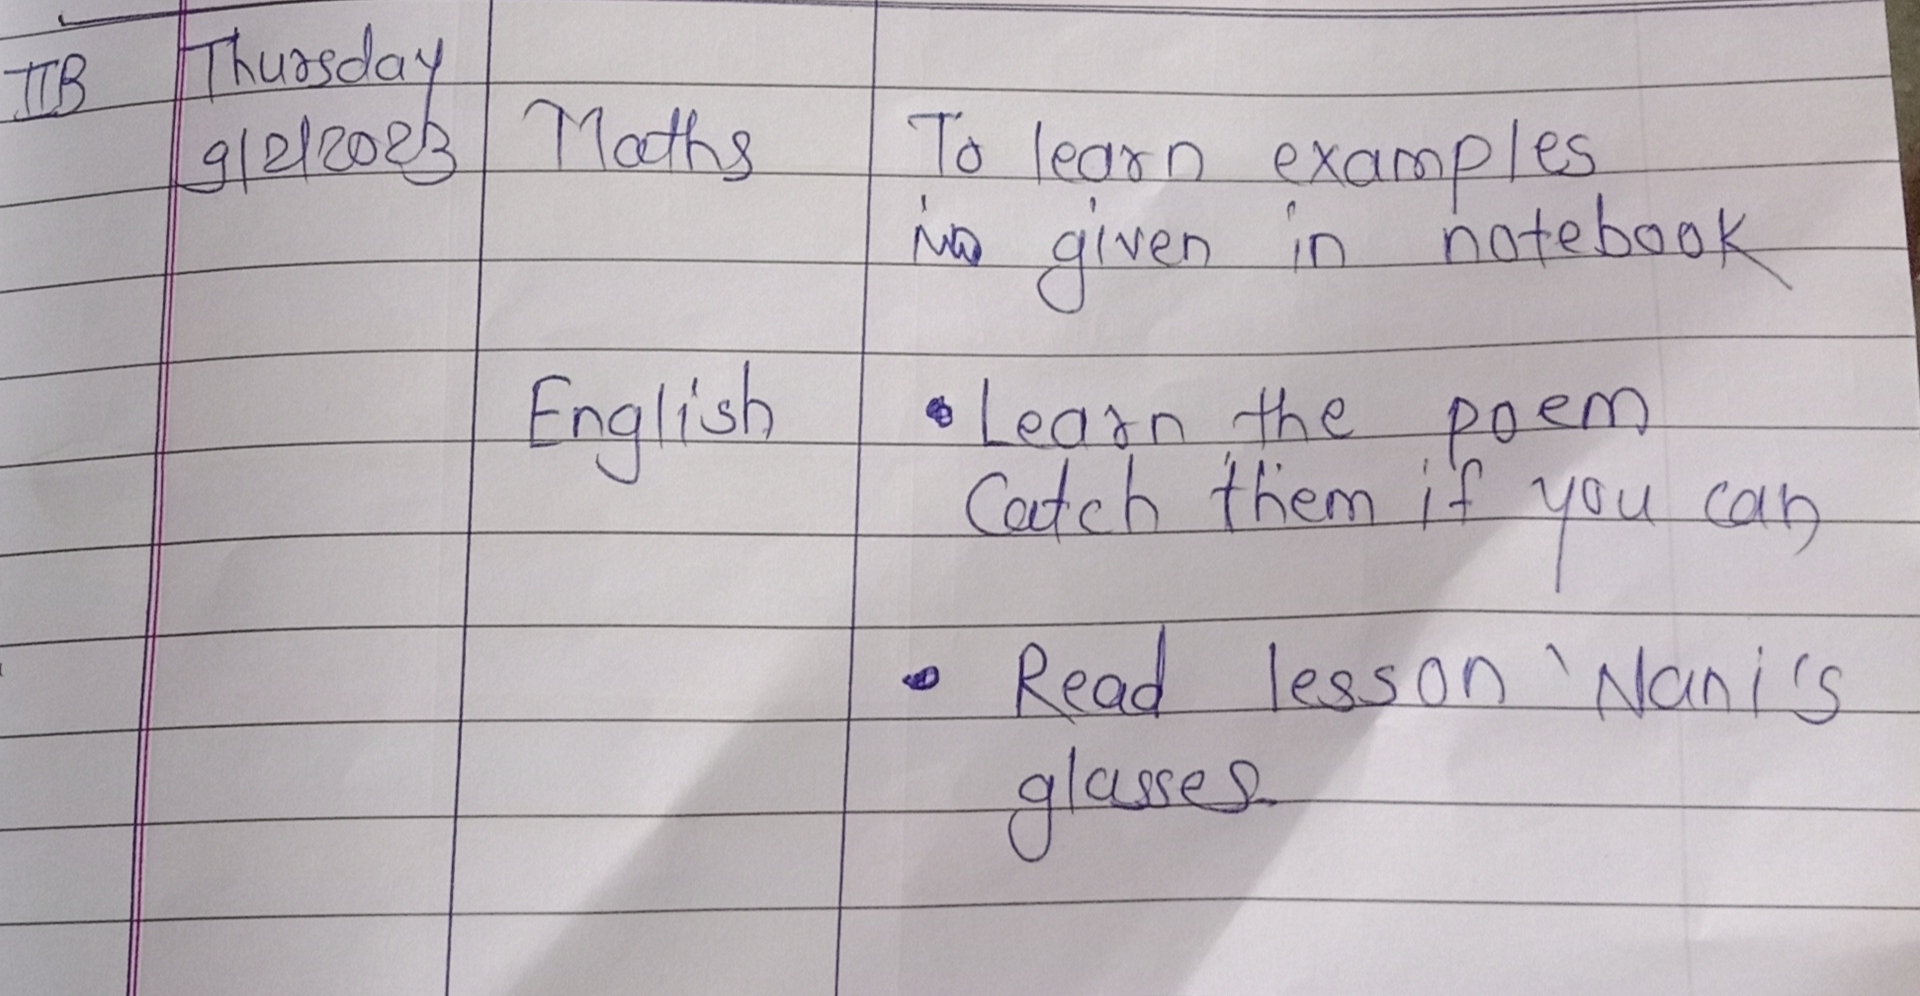 IIB Thursday
9/2/2023 Maths To learn examples
given in notebook
English • Learn the poem
Catch them if you can
• Read lesson 'Nani's
glasses.